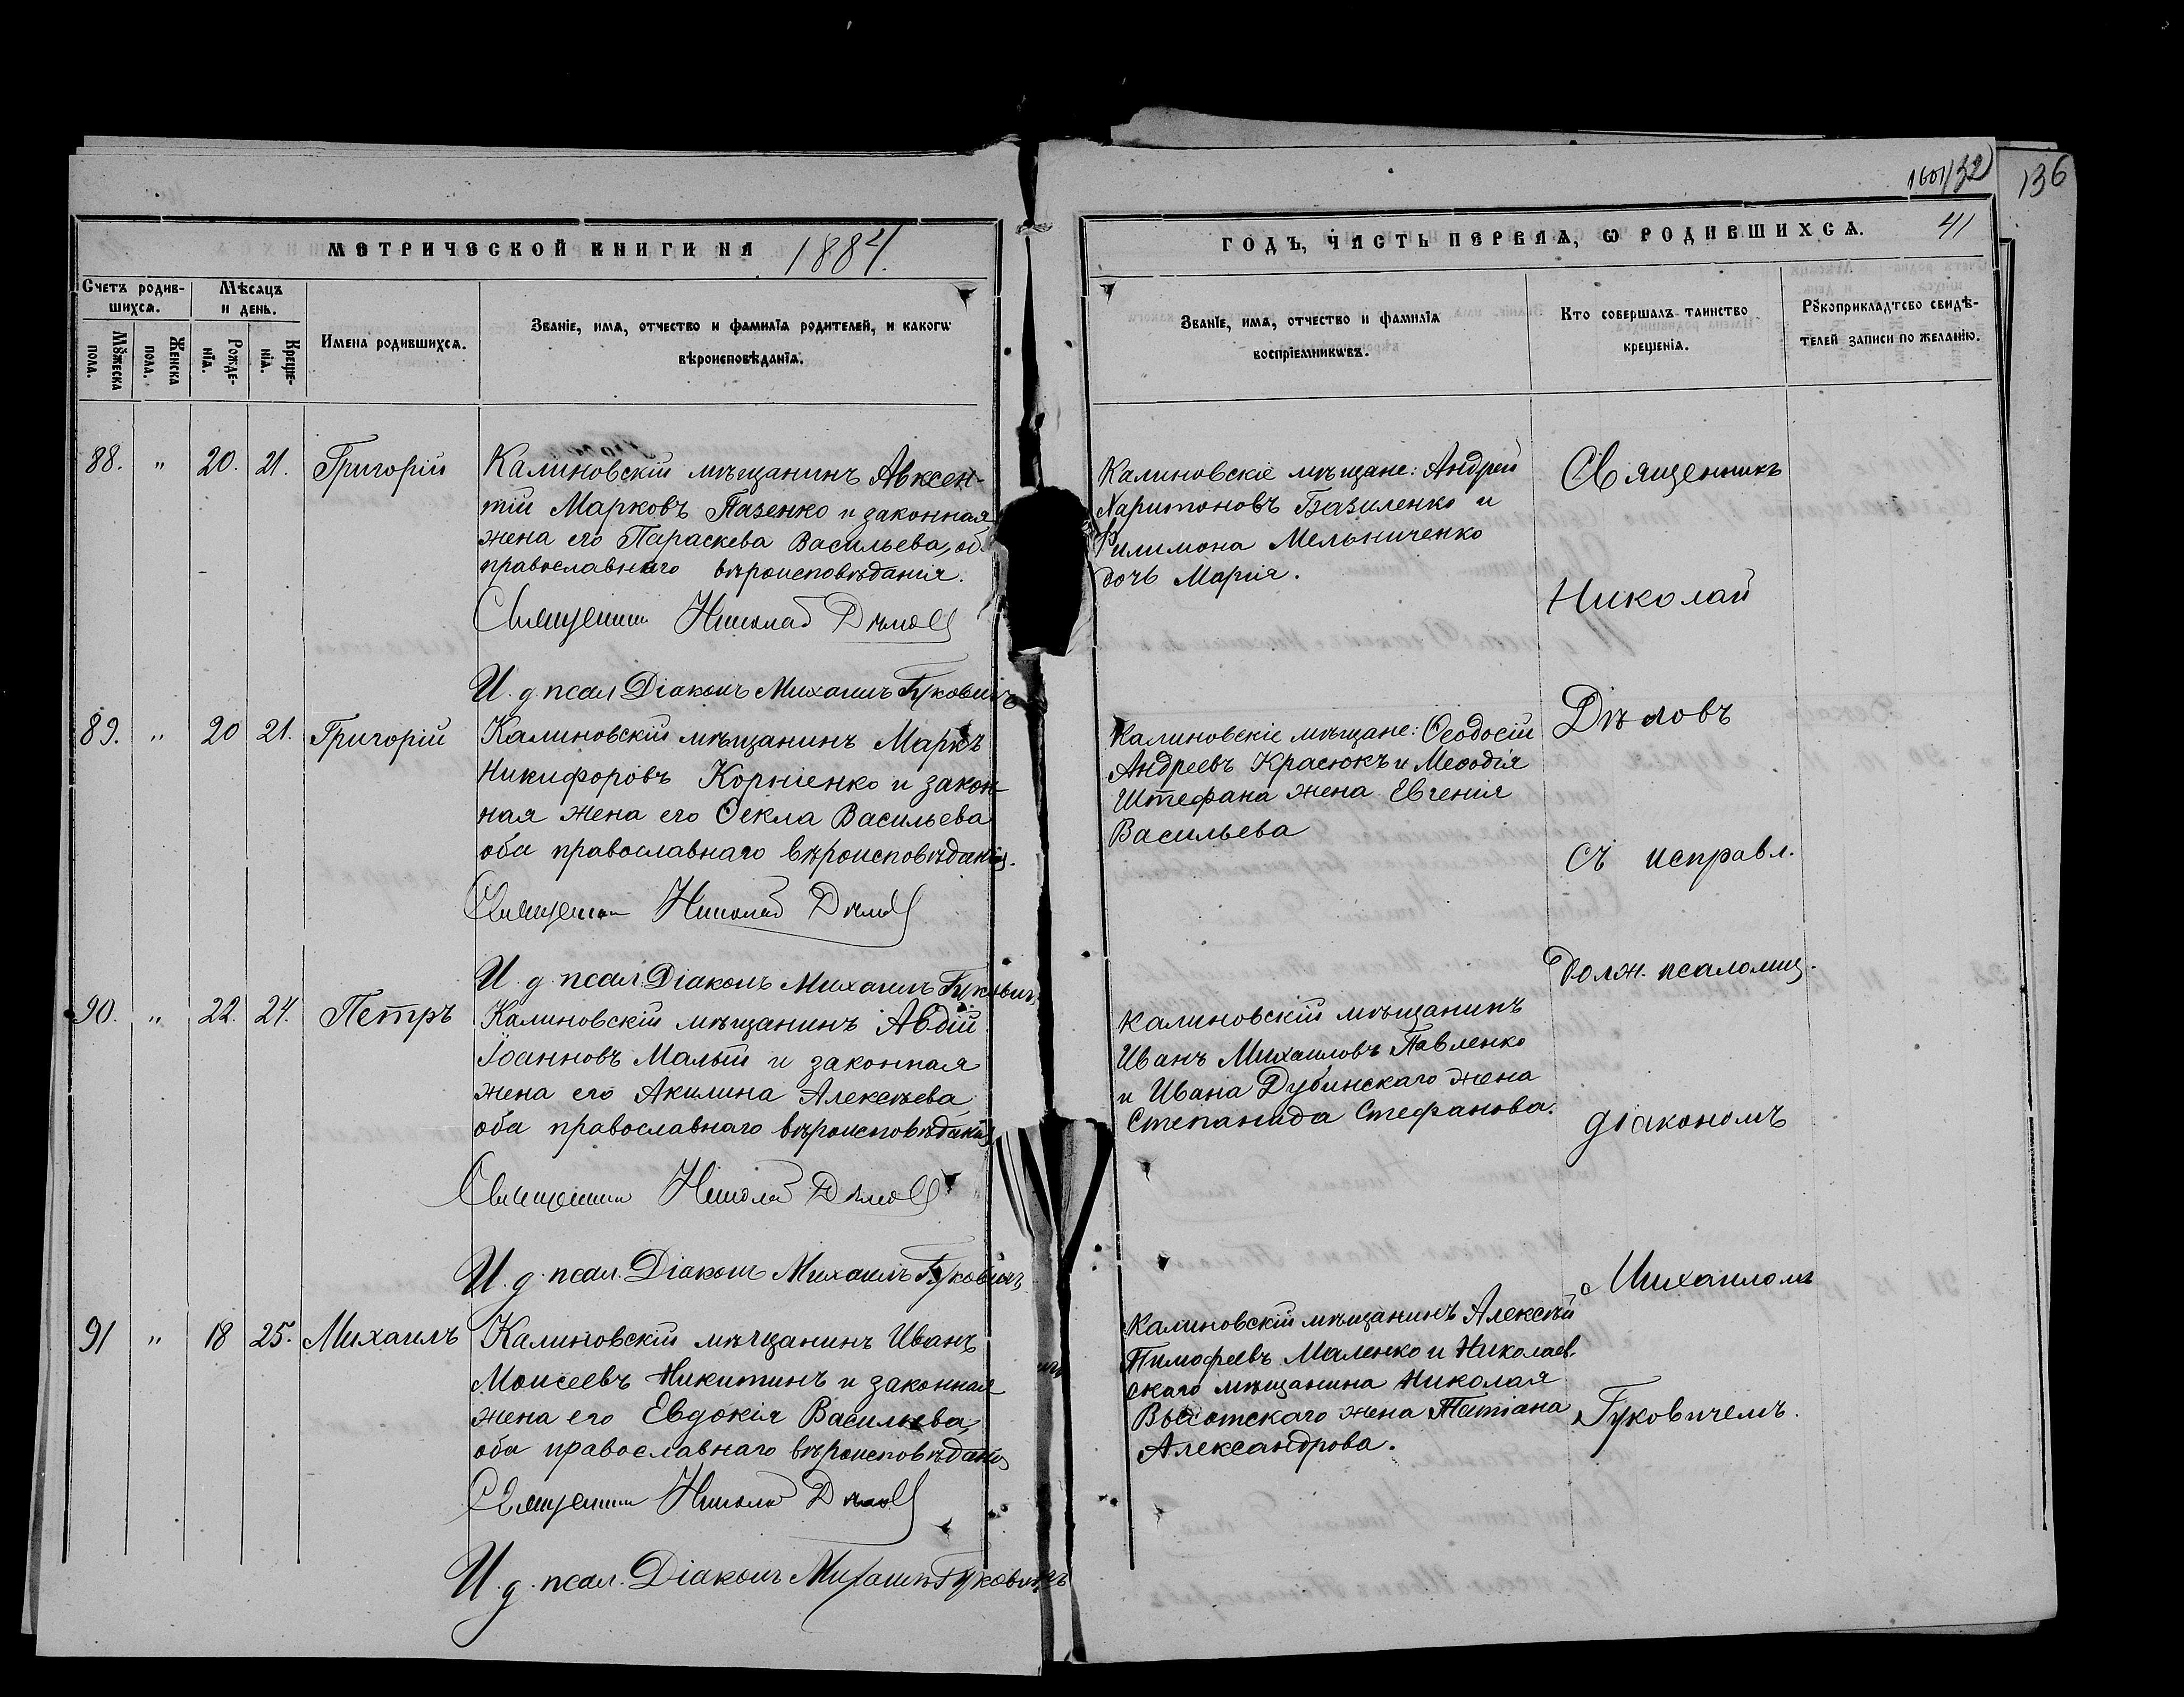 160 132 136
МЕТРИЧЕСКОЙ КНИГИ НА 1884.
ГОДЪ, ЧАСТЬ ПЕРВАЯ, Ѡ РОДИВШИХСѦ. 41
Счетъ родив-
шихсѧ.
Мѣсяцъ
и день.
Мꙋжеска
пола.
Женска
пола.
Рожде-
нїѧ.
Креще-
нїѧ.
Имена родившихсѧ.
Званїе, имѧ, отчество и фамилїѧ родителей, и какогѡ
вѣроисповѣданїѧ.
Званїе, имѧ, отчество и фамилїѧ
воспрїемникѡвъ.
Кто совершалъ таинство
крещенїѧ.
Рꙋкоприкладтсво свидѣ-
телей записи по желанїю.
88. " 20. 21. Григорій
Калиновскій мѣщанинъ Авксен-
тій Марковъ Пазенко и законная
жена его Параскева Васильева, об
православнаго вѣроисповѣданія.
Священникъ Николай Дѣловъ
И. д. псал. Діаконъ Михаилъ Гуковичъ
Калиновскіе мѣщане: Андрей
Харитоновъ Базиленко и
Филимона Мельниченко
дочь Марія.
89. " 20 21. Григорій
Калиновскій мѣщанинъ Маркъ
Никифоровъ Корніенко и закон-
ная жена его Ѳекла Васильева
оба православнаго вѣроисповѣданія.
Священникъ Николай Дѣловъ
И. д. псал. Діаконъ Михаилъ Гуковичъ
Калиновскіе мѣщане: Ѳеодосій
Андреевъ Красюкъ и Меѳодія
Штефана жена Евгенія
Васильева
90. " 22. 24. Петръ
Калиновскій мѣщанинъ Авдій
Іоанновъ Малый и законная
жена его Акилина Алексѣева
оба православнаго вѣроисповѣданія
Священникъ Николай Дѣловъ
И. д. псал. Діаконъ Михаилъ Гуковичъ
Калиновскій мѣщанинъ
Иванъ Михаиловъ Павленко
и Ивана Дубинскаго жена
Степанида Стефанова.
91 " 18 25. Михаилъ
Калиновскій мѣщанинъ Иванъ
Моисеевъ Никитинъ и законная
жена его Евдокія Васильева,
оба православнаго вѣроисповѣданія
Священникъ Николай Дѣловъ
И. д. псал. Діаконъ Михаилъ Гуковичъ
Калиновскій мѣщанинъ Алексѣй
Тимофеевъ Маленко и Николаев-
скаго мѣщанина Николая
Высотскаго жена Татіана
Александрова.
Священникъ
Николай
Дѣловъ
съ исправл.
долж. псаломщ.
діакономъ
Михаиломъ
Гуковичемъ.